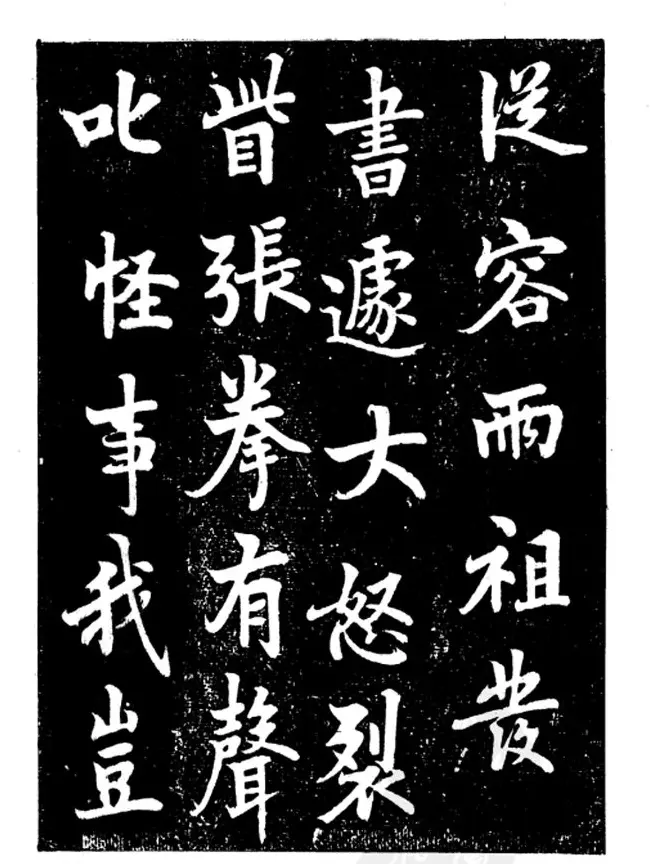 從容雨祖發
書遽大怒裂
眥張拳有聲
叱怪事我豈